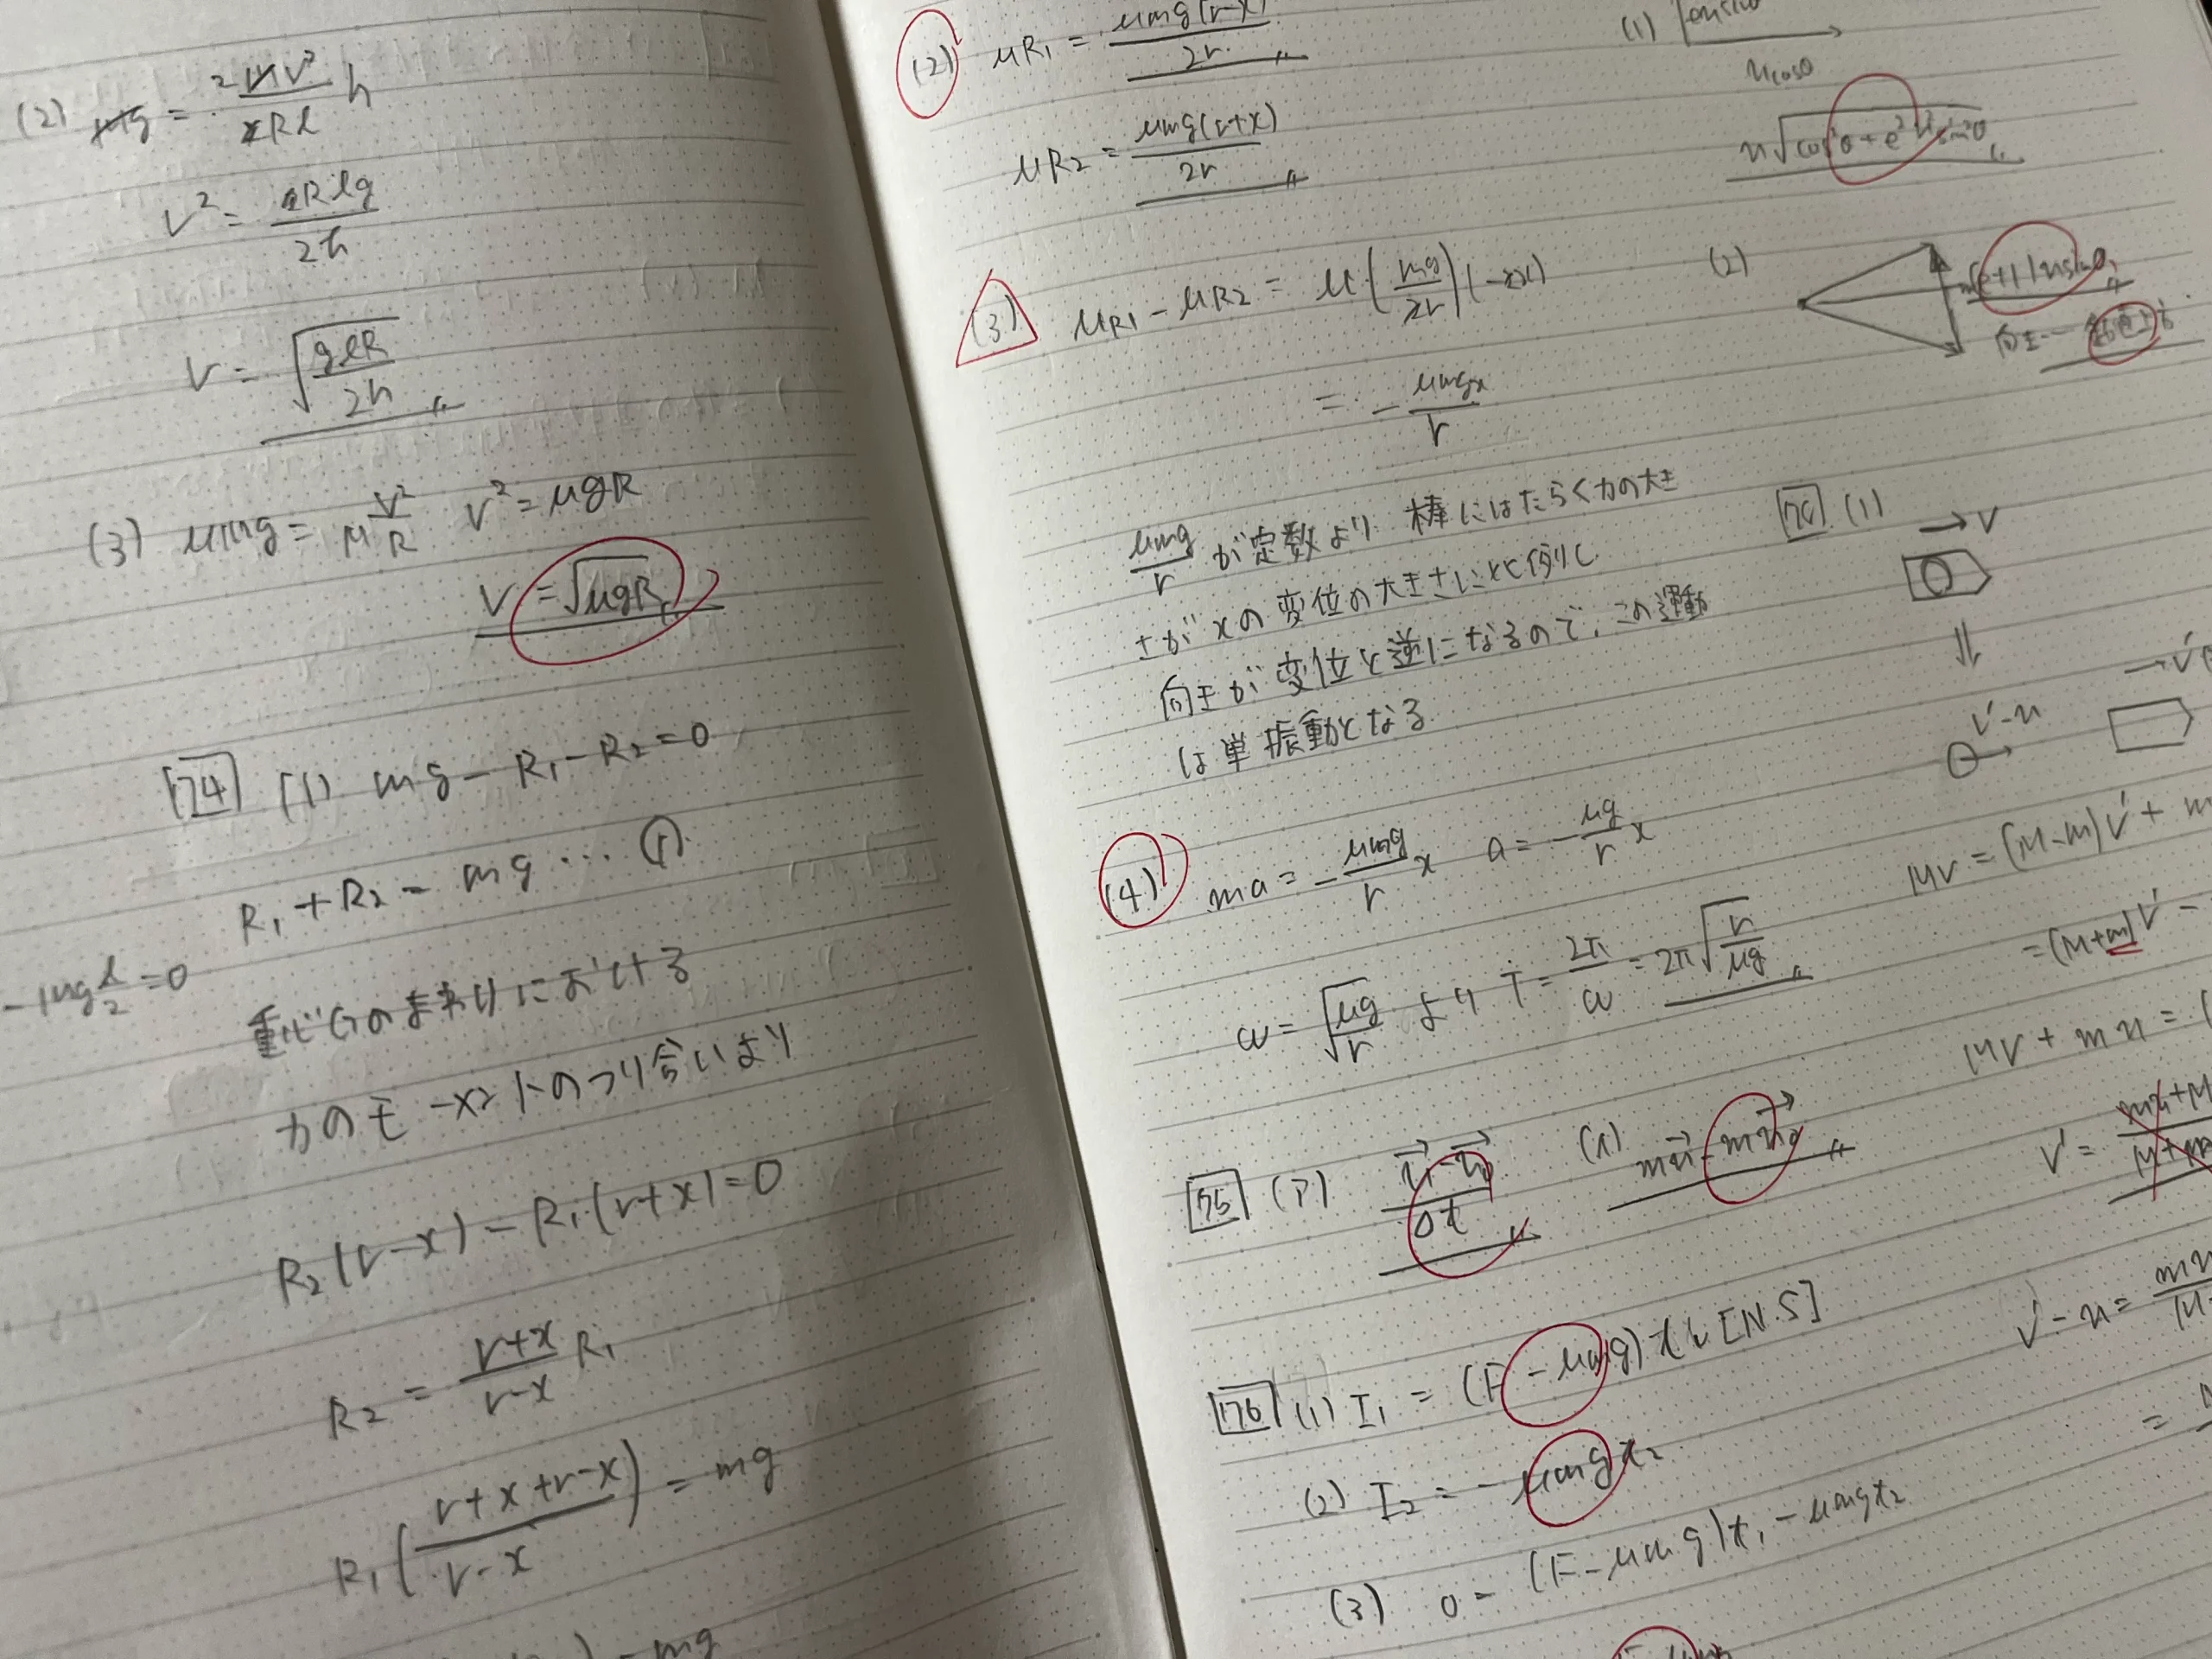 (2) mg = 2mv²/2Rl h
v² = 2Rlg/2h
v = √(glR/2h)
(3) μmg = M v²/R v² = μgR
v = √μgR
74 (1) mg - R₁ - R₂ = 0
R₁ + R₂ = mg … ①
- mg l/2 = 0
重心Gのまわりにおける
力のモーメントのつり合いより
R₂(r-x) - R₁(r+x) = 0
R₂ = (r+x)/(r-x) R₁
R₁((r+x+r-x)/(r-x)) = mg
mg
(2) μR₁ = μmg(r-x)/2r
μR₂ = μmg(r+x)/2r
(3) μR₁ - μR₂ = μ(mg/2r)(-2x)
= - μmgx/r
μmg/r が定数より 棒にはたらく力の大き
さが xの変位の大きさに比例し
向きが変位と逆になるので、この運動
は単振動となる
(4) ma = - μmg/r x a = - μg/r x
ω = √(μg/r) より T = 2π/ω = 2π√(r/μg)
75 (ア) (v⃗ - v⃗₀)/Δt (イ) mv⃗ - mv⃗₀
76 (1) I₁ = (F - μmg)t₁ [N·S]
(2) I₂ = - μmgt₂
(3) 0 = (F - μmg)t₁ - μmgt₂
(1)
ucosθ
(2)
(e+1)usinθ
向き…鉛直上
(1)
→ V
V'-u
→ V'
MV = (M-m)V' + m
= (M+m)V' -
MV + mu = (
V' =
V'-u =
=